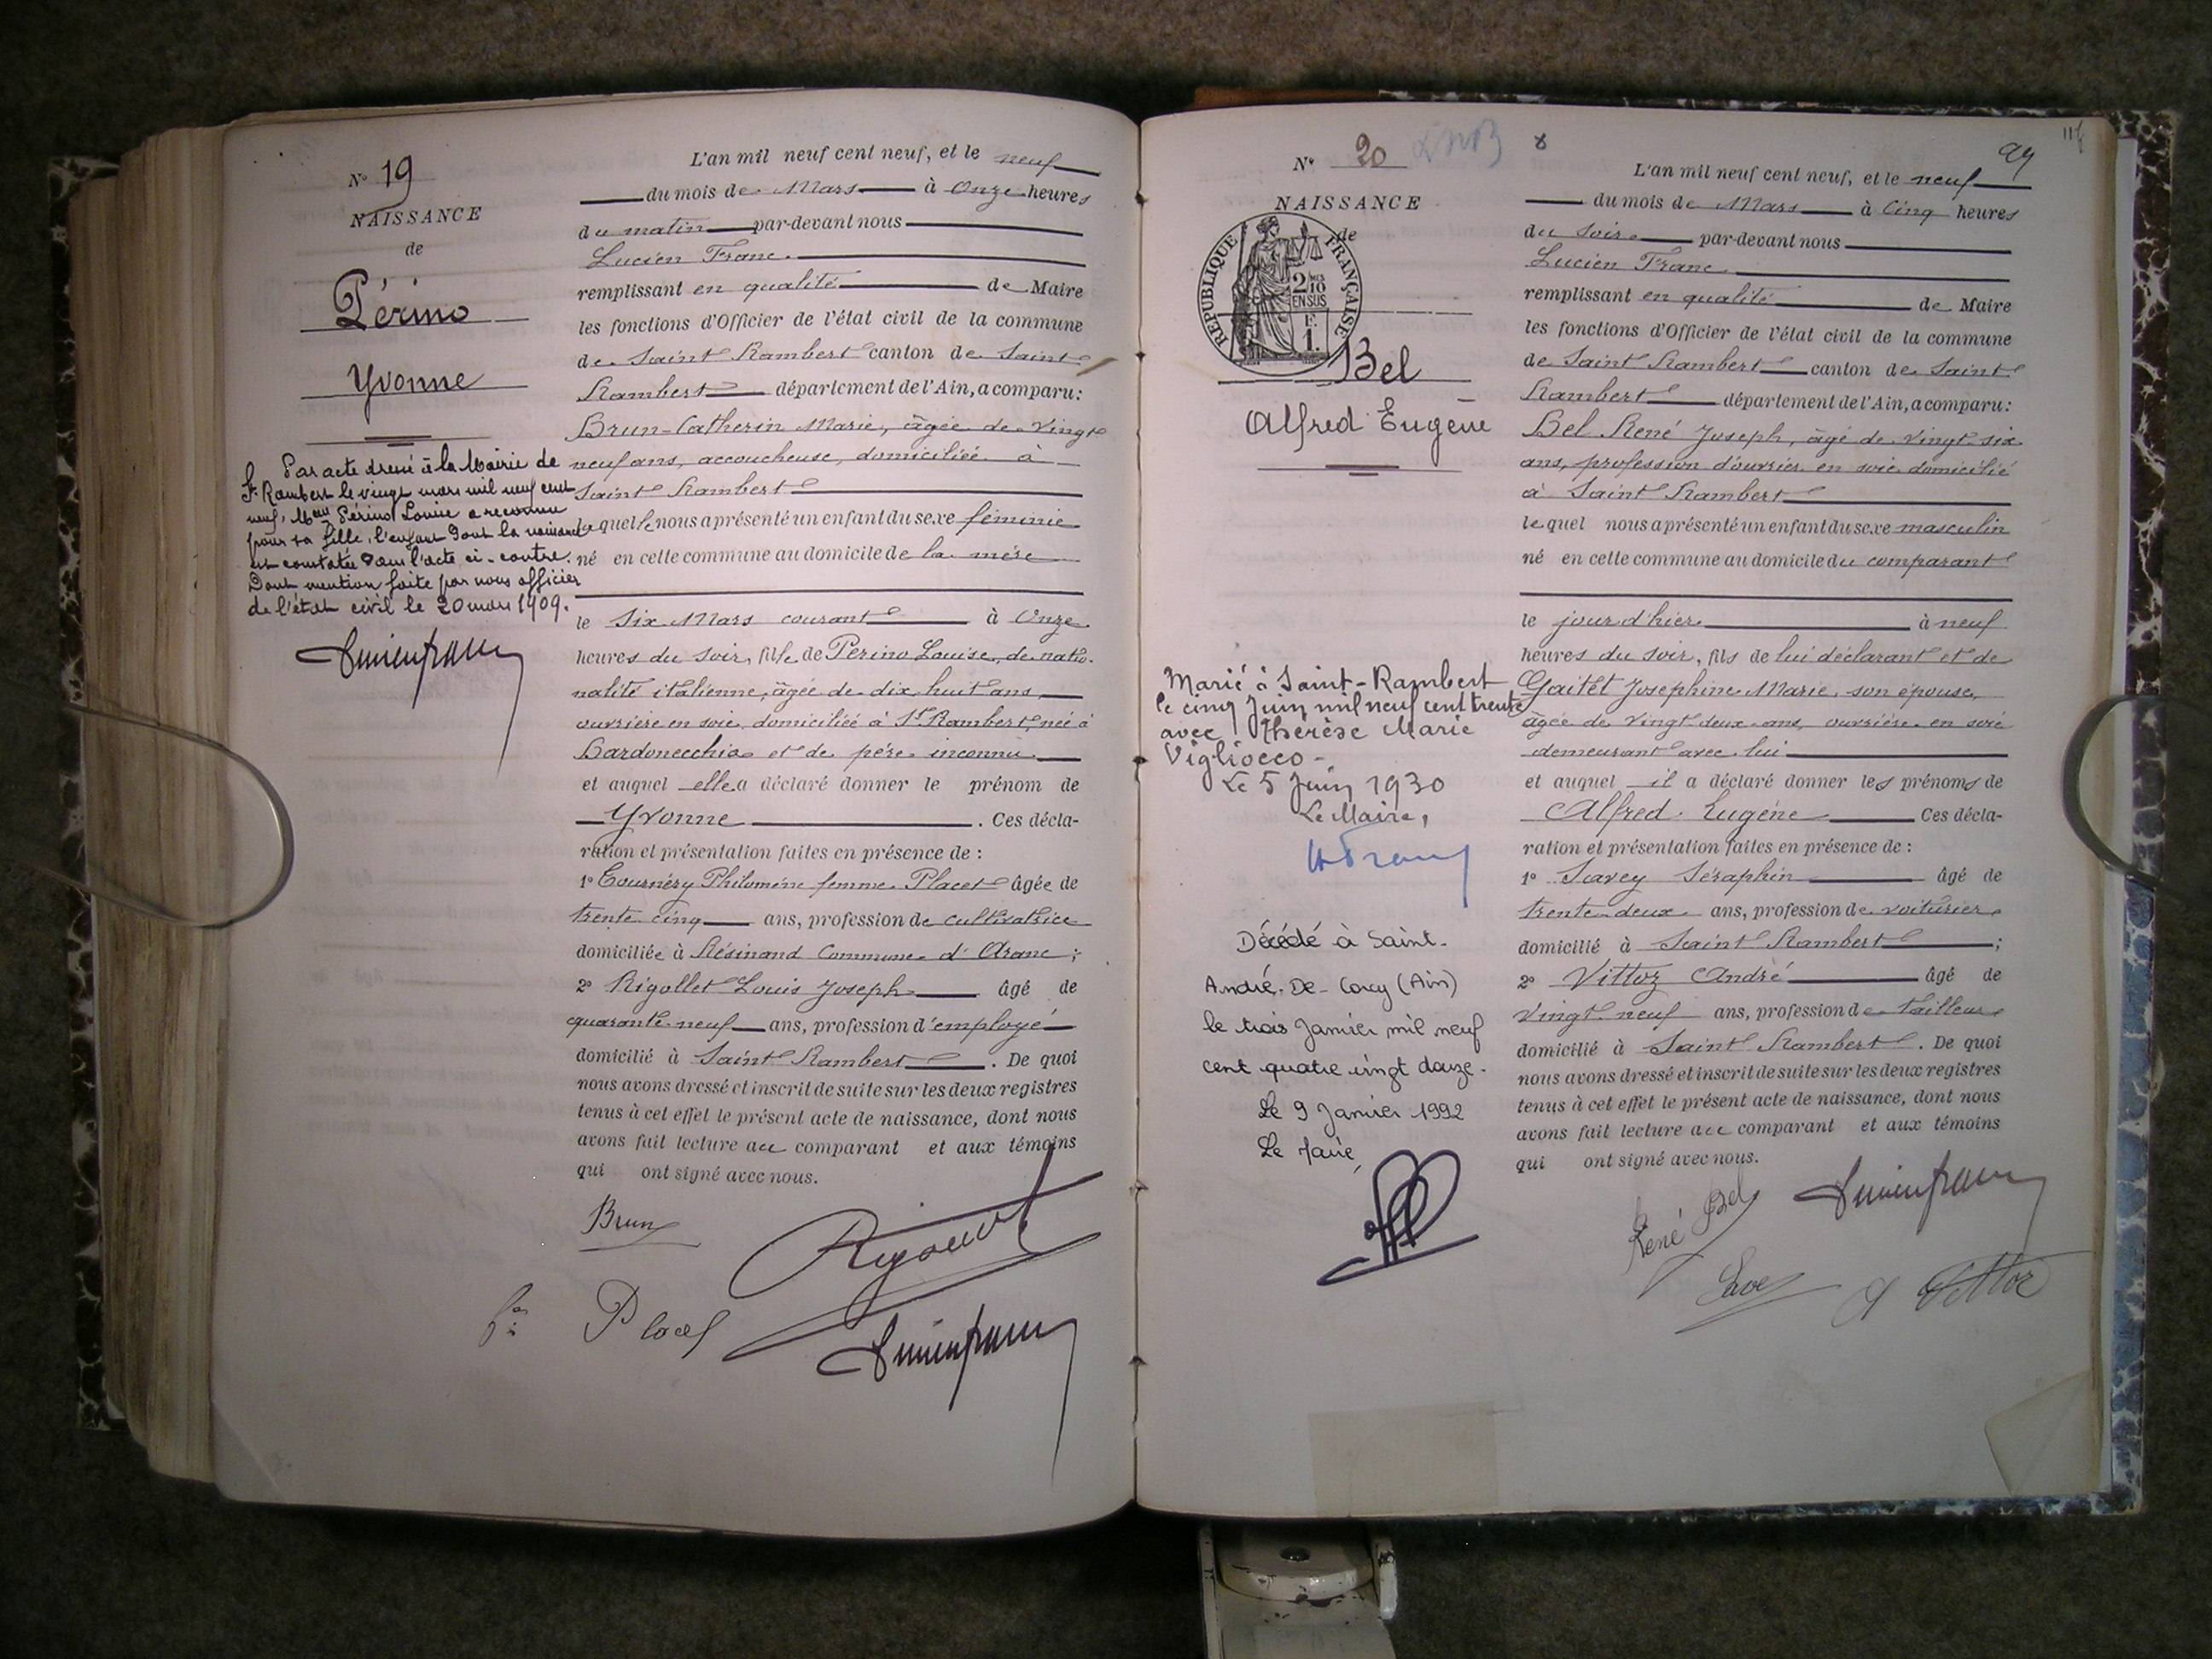 N° 19
NAISSANCE
de
Périno
Yvonne
Par acte dressé à la Mairie de
St Rambert le vingt mars mil neuf cent
neuf, Périno Louise a reconnu
pour sa fille, l'enfant dont la naissance
est constatée dans l'acte ci-contre.
Dont mention faite par nous officier
de l'état civil le 20 mars 1909.
L'an mil neuf cent neuf, et le neuf
du mois de Mars à Onze heures
du matin par-devant nous
Lucien Franc.
remplissant en qualité de Maire
les fonctions d'Officier de l'état civil de la commune
de Saint Rambert canton de Saint
Rambert département de l'Ain, a comparu:
Brun-Catherin Marie, âgée de vingt
neuf ans, accoucheuse, domiciliée à
Saint Rambert
laquelle nous a présenté un enfant du sexe féminin
né en cette commune au domicile de la mère
le Six Mars courant à Onze
heures du soir, fille de Périno Louise, de natio-
nalité italienne, âgée de dix huit ans,
ouvrière en soie, domiciliée à St Rambert, née à
Bardonecchia et de père inconnu
et auquel elle a déclaré donner le prénom de
Yvonne. Ces décla-
ration et présentation faites en présence de :
1° Tournéry Philomène femme Placet âgée de
trente cinq ans, profession de cultivatrice
domiciliée à Résinand Commune d'Aranc ;
2° Rigollet Louis Joseph âgé de
quarante neuf ans, profession d'employé
domicilié à Saint Rambert. De quoi
nous avons dressé et inscrit de suite sur les deux registres
tenus à cet effet le présent acte de naissance, dont nous
avons fait lecture au comparant et aux témoins
qui ont signé avec nous.
Brun
Rigollet
Placet
Lucien Franc
N° 20
NAISSANCE
de
RÉPUBLIQUE FRANÇAISE
2 MES 10
EN SUS
F.
1.
Bel
Alfred Eugène
Marié à Saint-Rambert
le cinq Juin mil neuf cent trente
avec Thérèse Marie
Vigliocco-
Le 5 Juin 1930
Le Maire,
Décédé à Saint-
André-De-Corcy (Ain)
le trois Janvier mil neuf
cent quatre vingt douze.
Le 9 Janvier 1992
Le Maire,
99
L'an mil neuf cent neuf, et le neuf
du mois de Mars à Cinq heures
du soir par-devant nous
Lucien Franc
remplissant en qualité de Maire
les fonctions d'Officier de l'état civil de la commune
de Saint Rambert canton de Saint
Rambert département de l'Ain, a comparu:
Bel René Joseph, âgé de vingt six
ans, profession d'ouvrier en soie domicilié
à Saint Rambert
lequel nous a présenté un enfant du sexe masculin
né en cette commune au domicile du comparant
le jour d'hier à neuf
heures du soir, fils de lui déclarant et de
Gaitet Joséphine Marie, son épouse,
âgée de vingt deux ans, ouvrière en soie
demeurant avec lui
et auquel il a déclaré donner les prénoms de
Alfred Eugène Ces décla-
ration et présentation faites en présence de :
1° Savey Séraphin âgé de
trente deux ans, profession de voiturier
domicilié à Saint Rambert ;
2° Vittoz André âgé de
vingt neuf ans, profession de tailleur
domicilié à Saint Rambert. De quoi
nous avons dressé et inscrit de suite sur les deux registres
tenus à cet effet le présent acte de naissance, dont nous
avons fait lecture au comparant et aux témoins
qui ont signé avec nous.
René Bel
Lucien Franc
A Vittoz